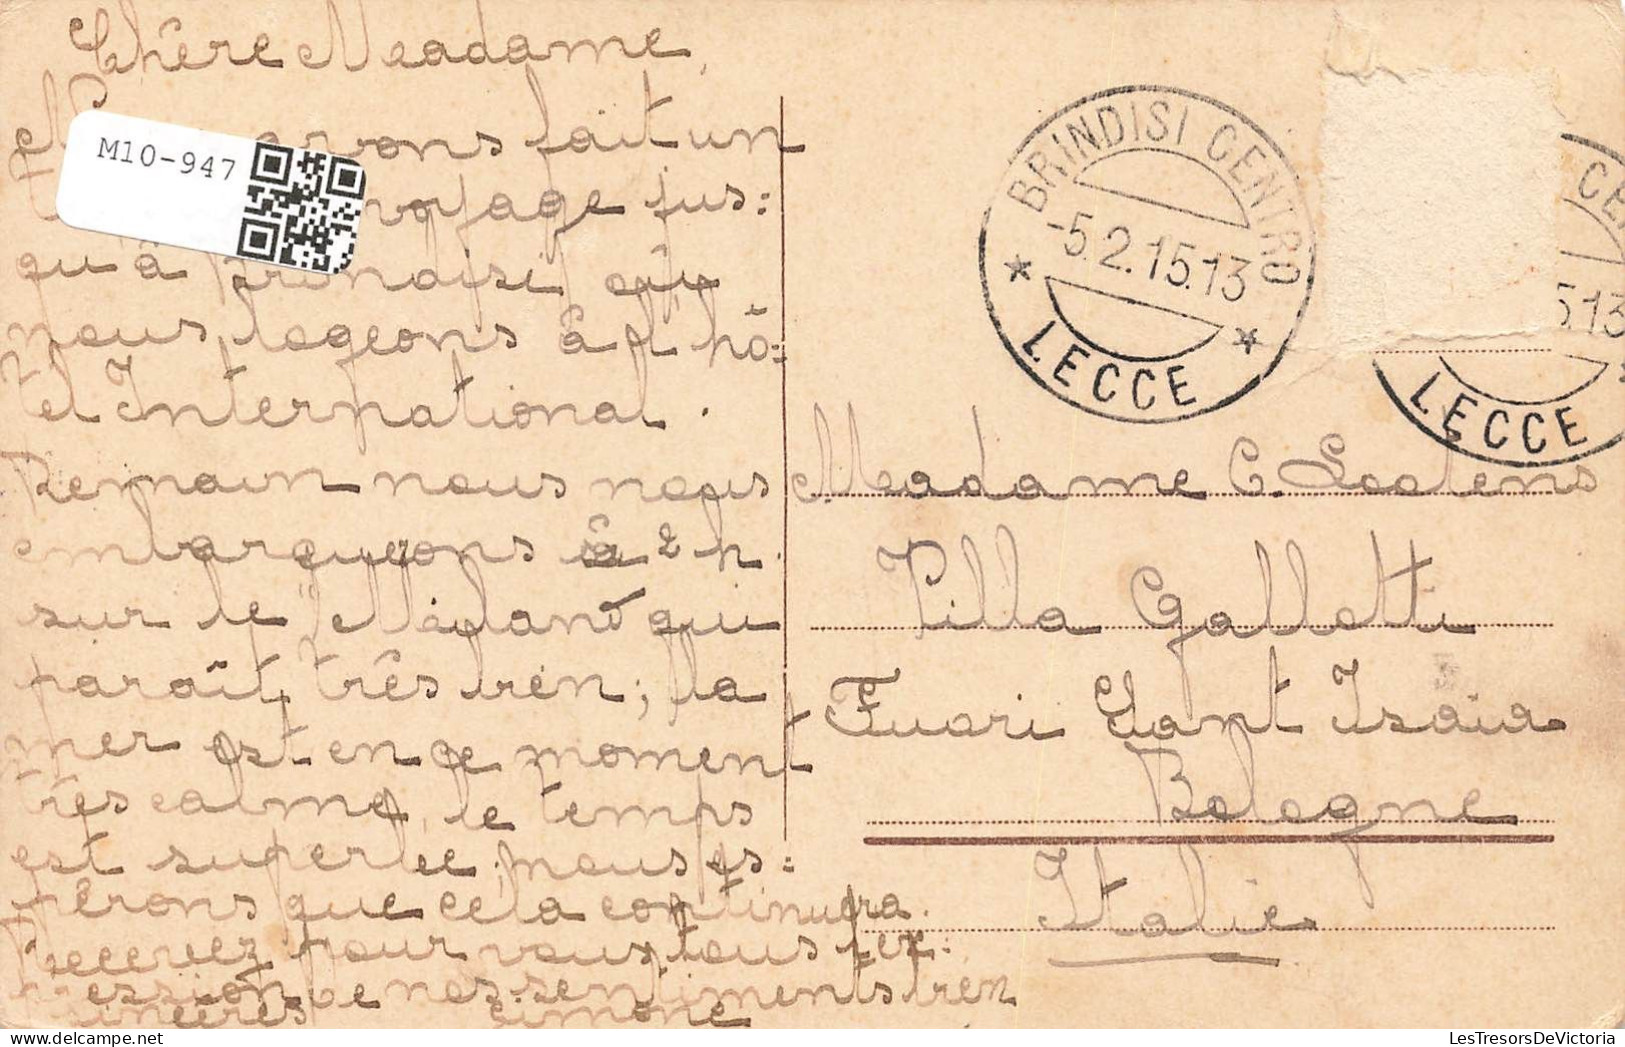 Chère Madame,
avons fait un
voyage jus=
qu'à Brindisi où
nous logeons à l'hô=
tel International.
Demain nous nous
embarquons à 2 h.
sur le qui
paraît très bien; la
mer est en ce moment
très calme, le temps
est superbe, nous es=
pérons que cela continuera.
Recevez pour vous tous l'ex=
pression de nos sentiments bien
sincères Simone
M10-947
BRINDISI CENTRO
-5.2.15.13
* LECCE *
CE
513
LECCE
Madame C. Soolens
Villa Galletti
Fuori Sant Isaia
Bologne
Italie
LesTresorsDeVictoria